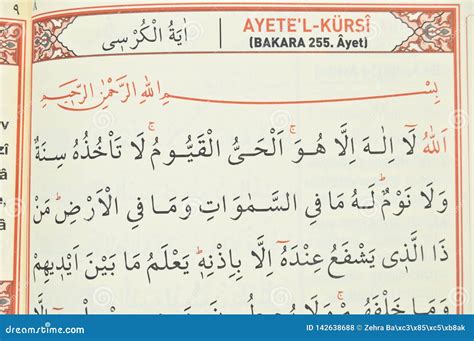 ٩
اٰيَةُ الْكُرْسِي
AYETE'L-KÜRSÎ
(BAKARA 255. Âyet)
بِسْمِ اللهِ الرَّحْمٰنِ الرَّحِيمِ
اَللّٰهُ لَٓا اِلٰهَ اِلَّا هُوَۚ اَلْحَيُّ الْقَيُّومُۚ لَا تَأْخُذُهُ سِنَةٌ
وَلَا نَوْمٌۜ لَهُ مَا فِي السَّمٰوَاتِ وَمَا فِي الْاَرْضِۜ مَنْ
ذَا الَّذ۪ي يَشْفَعُ عِنْدَهُٓ اِلَّا بِاِذْنِه۪ۜ يَعْلَمُ مَا بَيْنَ اَيْد۪يهِمْ
وَمَا خَلْفَهُمْۚ وَلَا
dreamstime.com
ID 142638688 © Zehra Ba\xc3\x85\xc5\xb8ak